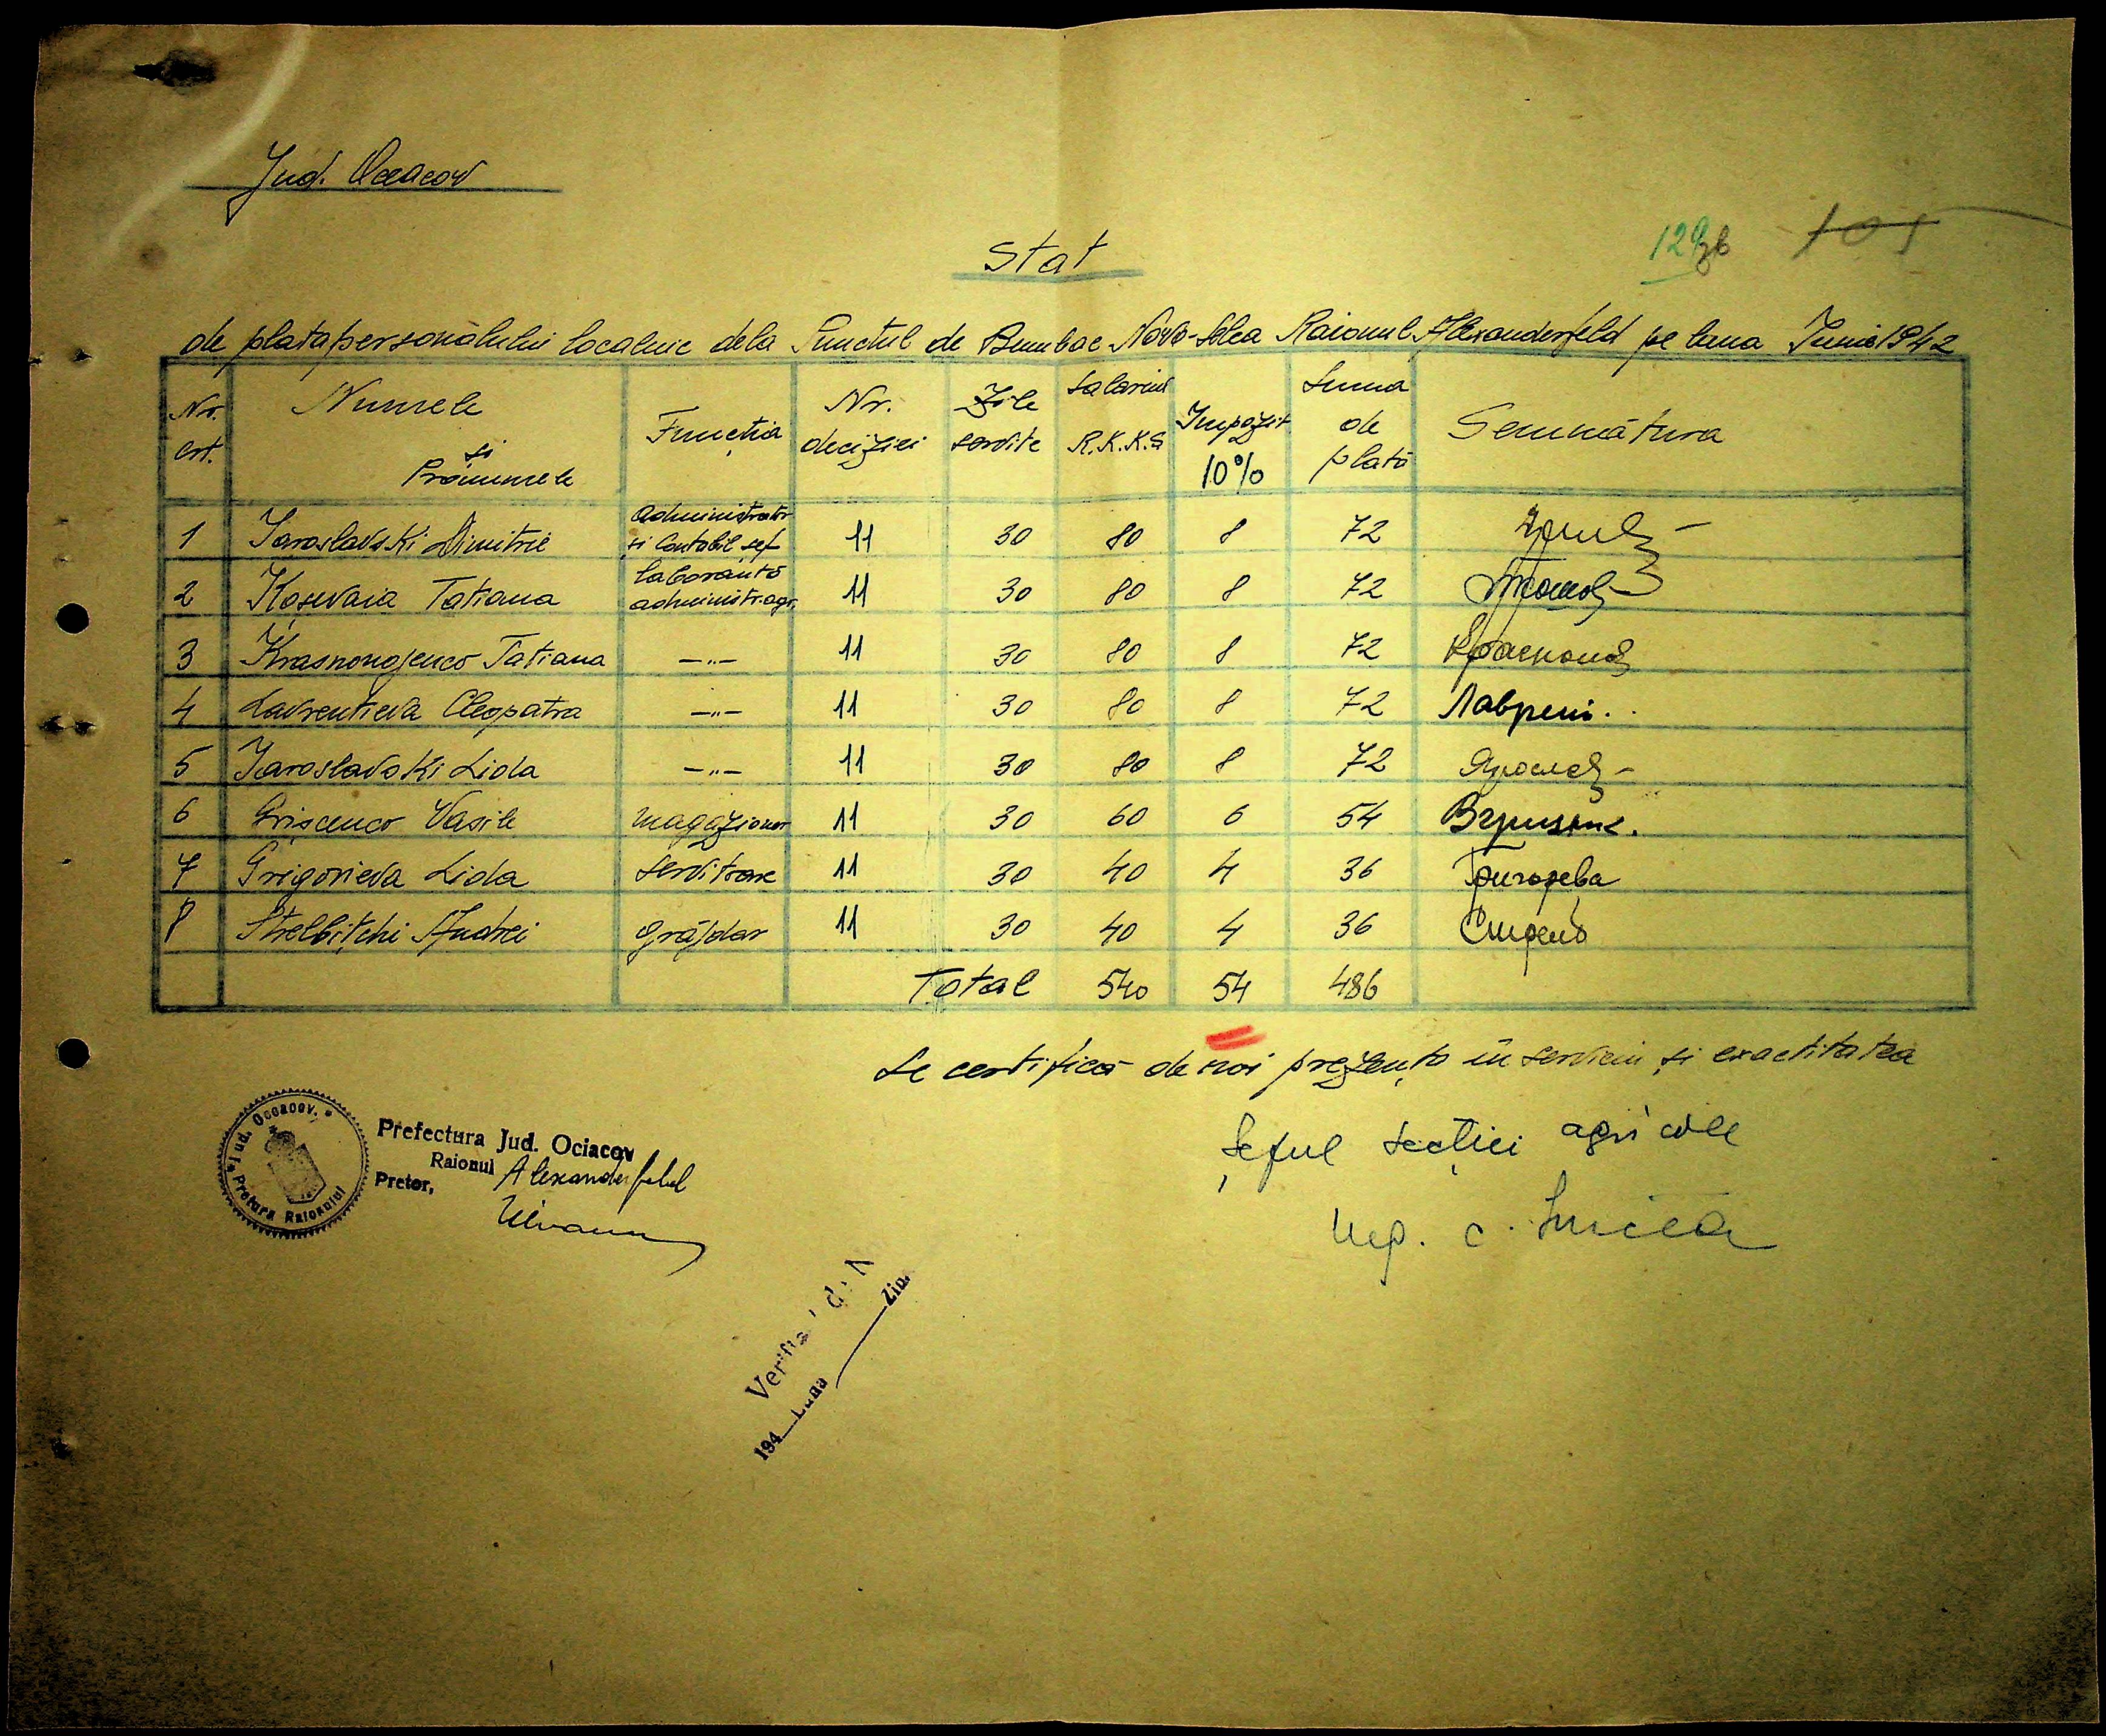 Jud. Oceacov
129 36 101
Stat
de plata personalului localnic dela Punctul de Bumbac Novo-Selca Raionul Alexanderfeld pe luna Junie 1942
Nr. crt. Numele și Pronumele Funcția Nr. deciziei Zile servite Salariul R.K.K.S Impozit 10% Suma de plată Semnătura
1 Jaroslavski Dimitrie Administrator și Contabil șef 11 30 80 8 72
2 Koșevaia Tatiana laborantă administr. agr. 11 30 80 8 72
3 Krasnonojenco Tatiana —"— 11 30 80 8 72 Краснонож
4 Lavrentieva Cleopatra —"— 11 30 80 8 72 Лаврент..
5 Jaroslavski Lida —"— 11 30 80 8 72 Ярослав
6 Grișcenco Vasile magazioner 11 30 60 6 54 Вгрищенк.
7 Grigorieva Lida servitoare 11 30 40 4 36 Григорева
8 Strelbițchi Andrei grăjdar 11 30 40 4 36
Total 540 54 486
Se certifică de noi prezența în serviciu și exactitatea
Șeful secției agricole
Prefectura Jud. Ociacov
Raionul Alexanderfeld
Pretor,
Jud. Oceacov.
Pretura Raionului
Ing. C.
194__ Luna ____ Ziu.